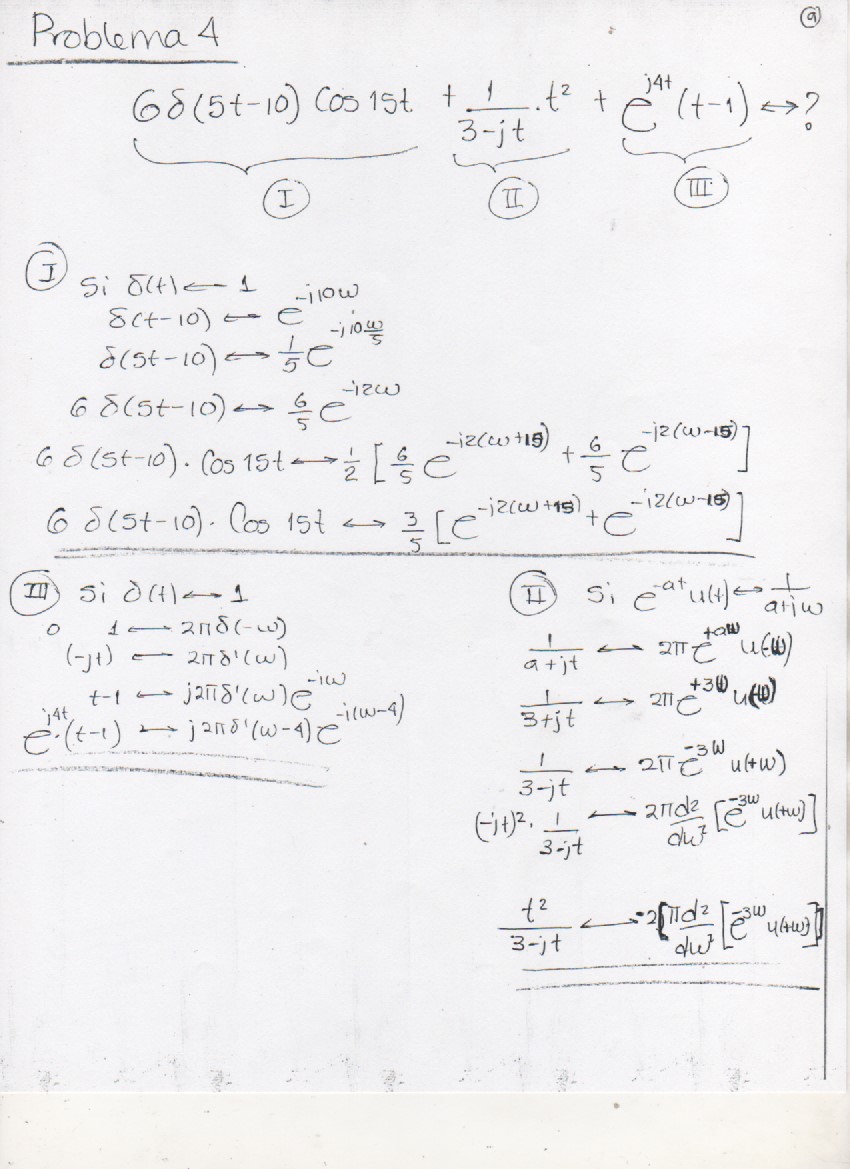 9
Problema 4
6δ(5t-10) Cos 15t + 1/(3-jt) · t² + e^{j4t} (t-1) ↔ ?
I II III
I Si δ(t) ↔ 1
δ(t-10) ↔ e^{-j10ω}
δ(5t-10) ↔ 1/5 e^{-j10ω/5}
6 δ(5t-10) ↔ 6/5 e^{-j2ω}
6 δ(5t-10) · Cos 15t ↔ 1/2 [6/5 e^{-j2(ω+15)} + 6/5 e^{-j2(ω-15)}]
6 δ(5t-10) · Cos 15t ↔ 3/5 [e^{-j2(ω+15)} + e^{-j2(ω-15)}]
III Si δ(t) ↔ 1
1 ↔ 2πδ(-ω)
(-jt) ↔ 2πδ'(ω)
t-1 ↔ j2πδ'(ω) e^{-jω}
e^{j4t} · (t-1) ↔ j2πδ'(ω-4) e^{-j(ω-4)}
II Si e^{-at} u(t) ↔ 1/(a+jω)
1/(a+jt) ↔ 2π e^{+aω} u(-ω)
1/(3+jt) ↔ 2π e^{+3ω} u(-ω)
1/(3-jt) ↔ 2π e^{-3ω} u(+ω)
(-jt)² · 1/(3-jt) ↔ 2π d²/dω² [e^{-3ω} u(+ω)]
t²/(3-jt) ↔ -2[π d²/dω² [e^{-3ω} u(+ω)]]